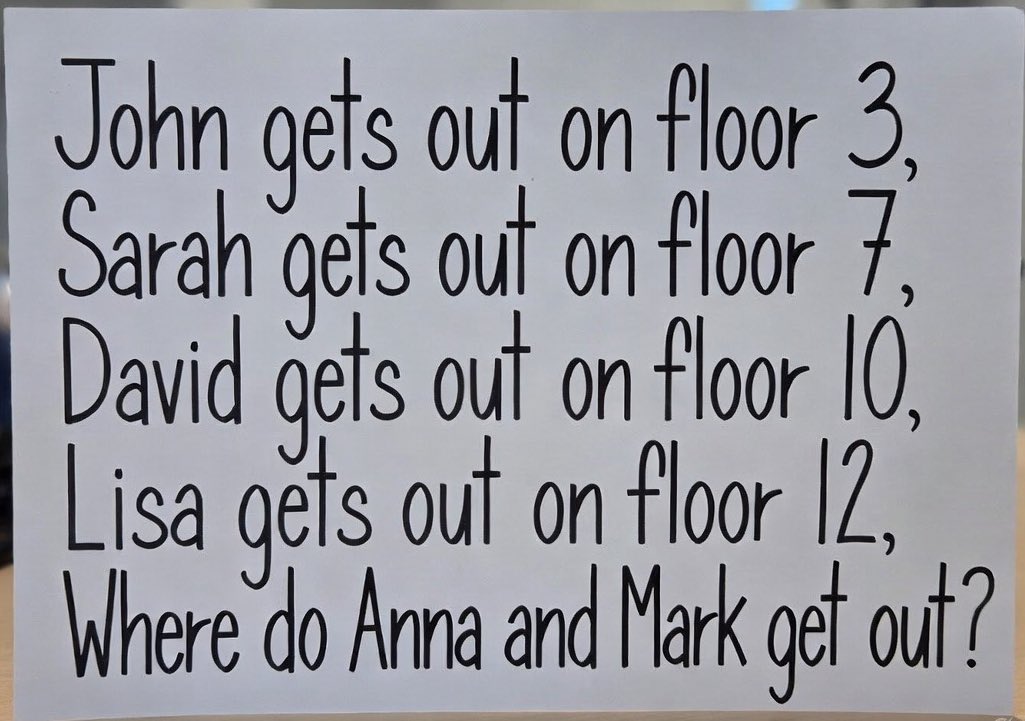 John gets out on floor 3,
Sarah gets out on floor 7,
David gets out on floor 10,
Lisa gets out on floor 12,
Where do Anna and Mark get out?